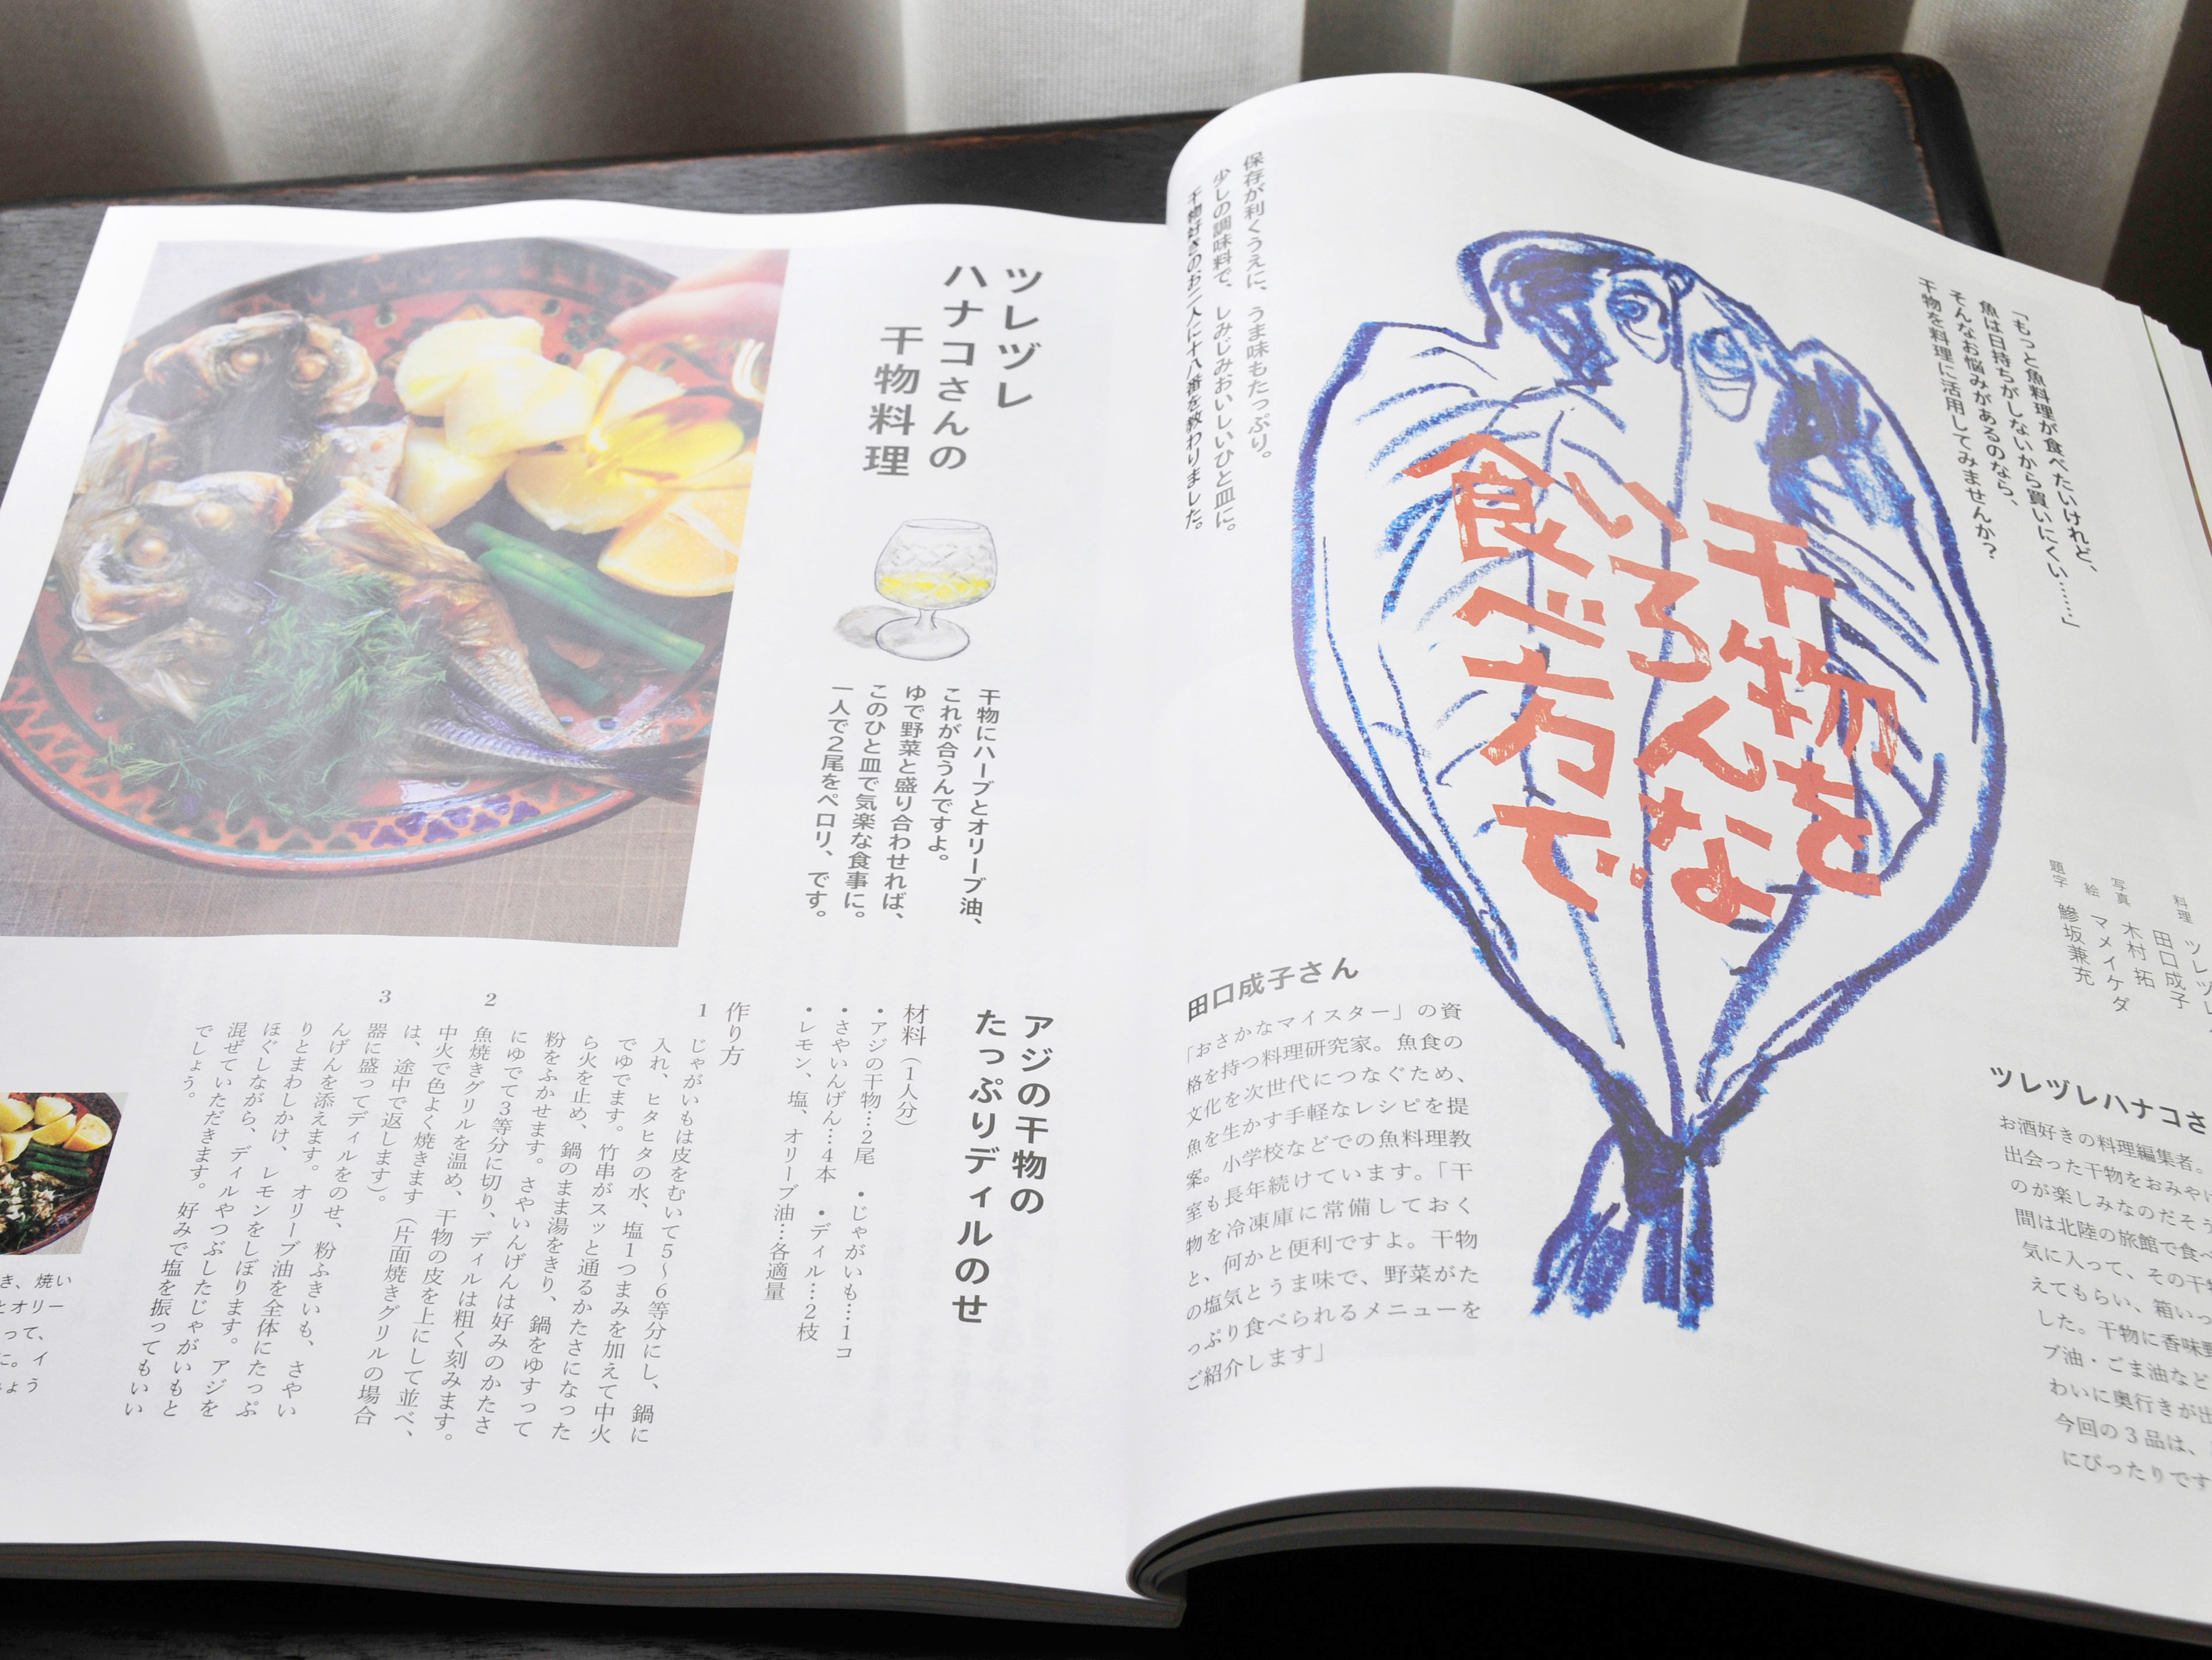 「もっと魚料理が食べたいけれど、
魚は日持ちがしないから買いにくい……」
そんなお悩みがあるのなら、
干物を料理に活用してみませんか?
干物を
いろんな
食べ方で
保存が利くうえに、うま味もたっぷり。
少しの調味料で、しみじみおいしいひと皿に。
干物好きのお二人に十八番を教わりました。
料理 ツレヅレ
田口成子
写真 木村 拓
絵 マメイケダ
題字 鰺坂兼充
ツレヅレハナコさ
お酒好きの料理編集者。
出会った干物をおみやげ
のが楽しみなのだそう
間は北陸の旅館で食べ
気に入って、その干物
えてもらい、箱いっ
した。干物に香味野
ブ油・ごま油など
わいに奥行きが出
今回の3品は、
にぴったりです
田口成子さん
「おさかなマイスター」の資
格を持つ料理研究家。魚食の
文化を次世代につなぐため、
魚を生かす手軽なレシピを提
案。小学校などでの魚料理教
室も長年続けています。「干
物を冷凍庫に常備しておく
と、何かと便利ですよ。干物
の塩気とうま味で、野菜がた
っぷり食べられるメニューを
ご紹介します」
ツレヅレ
ハナコさんの
干物料理
干物にハーブとオリーブ油、
これが合うんですよ。
ゆで野菜と盛り合わせれば、
このひと皿で気楽な食事に。
一人で2尾をペロリ、です。
アジの干物の
たっぷりディルのせ
材料(1人分)
・アジの干物…2尾 ・じゃがいも…1コ
・さやいんげん…4本 ・ディル…2枝
・レモン、塩、オリーブ油…各適量
作り方
1 じゃがいもは皮をむいて5〜6等分にし、鍋に
入れ、ヒタヒタの水、塩1つまみを加えて中火
でゆでます。竹串がスッと通るかたさになった
ら火を止め、鍋のまま湯をきり、鍋をゆすって
粉をふかせます。さやいんげんは好みのかたさ
にゆでて3等分に切り、ディルは粗く刻みます。
2 魚焼きグリルを温め、干物の皮を上にして並べ、
中火で色よく焼きます(片面焼きグリルの場合
は、途中で返します)。
3 器に盛ってディルをのせ、粉ふきいも、さやい
んげんを添えます。オリーブ油を全体にたっぷ
りとまわしかけ、レモンをしぼります。アジを
ほぐしながら、ディルやつぶしたじゃがいもと
混ぜていただきます。好みで塩を振ってもいい
でしょう。
き、焼い
とオリー
って、
に。イ
しょう